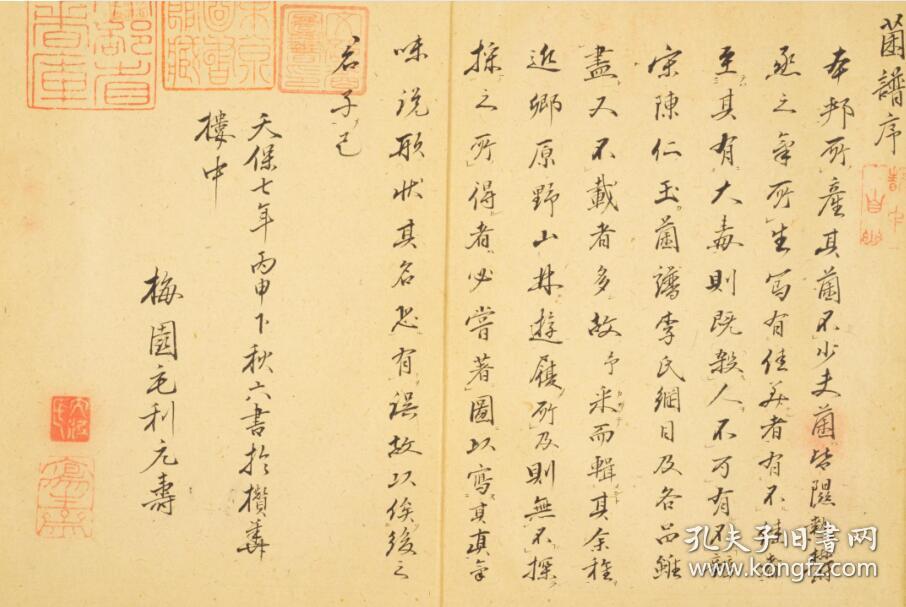 菌譜序
本邦所產其菌不少夫菌皆隰熱
烝之氣所生寫有佳美者有不佳者
至其有大毒則既殺人不可有不
宋陳仁玉菌譜李氏綱目及各品雖
盡又不載者多故予采而輯其余種
近鄉原野山林遊屐所及則無不探
採之所得者必嘗著圖以寫其真氣
味說形狀其名恐有誤故以俟後之
君子已
天保七年丙申下秋六書於攢華
樓中
梅園毛利元壽
孔夫子旧书网
www.kongfz.com